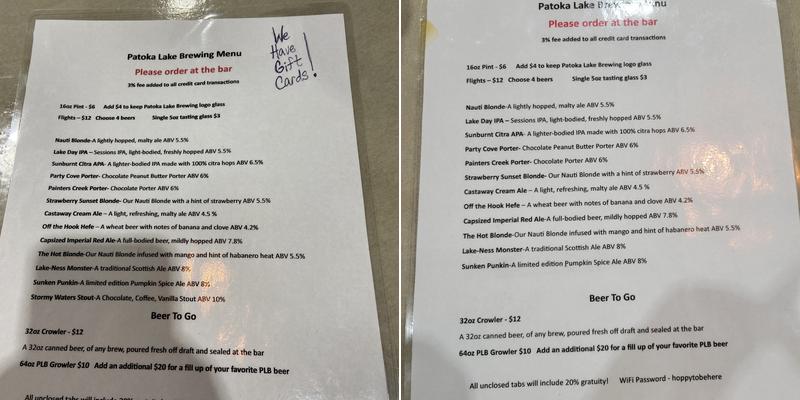 Patoka Lake Brewing Menu
Please order at the bar
3% fee added to all credit card transactions
We
Have
Gift
Cards!
16oz Pint - $6 Add $4 to keep Patoka Lake Brewing logo glass
Flights – $12 Choose 4 beers Single 5oz tasting glass $3
Nauti Blonde-A lightly hopped, malty ale ABV 5.5%
Lake Day IPA – Sessions IPA, light-bodied, freshly hopped ABV 5.5%
Sunburnt Citra APA- A lighter-bodied IPA made with 100% citra hops ABV 6.5%
Party Cove Porter- Chocolate Peanut Butter Porter ABV 6%
Painters Creek Porter- Chocolate Porter ABV 6%
Strawberry Sunset Blonde- Our Nauti Blonde with a hint of strawberry ABV 5.5%
Castaway Cream Ale – A light, refreshing, malty ale ABV 4.5 %
Off the Hook Hefe – A wheat beer with notes of banana and clove ABV 4.2%
Capsized Imperial Red Ale-A full-bodied beer, mildly hopped ABV 7.8%
The Hot Blonde-Our Nauti Blonde infused with mango and hint of habanero heat ABV 5.5%
Lake-Ness Monster-A traditional Scottish Ale ABV 8%
Sunken Punkin-A limited edition Pumpkin Spice Ale ABV 8%
Stormy Waters Stout-A Chocolate, Coffee, Vanilla Stout ABV 10%
Beer To Go
32oz Crowler - $12
A 32oz canned beer, of any brew, poured fresh off draft and sealed at the bar
64oz PLB Growler $10 Add an additional $20 for a fill up of your favorite PLB beer
All unclosed tabs will include 20%
Patoka Lake Brewing Menu
Please order at the bar
3% fee added to all credit card transactions
16oz Pint - $6 Add $4 to keep Patoka Lake Brewing logo glass
Flights – $12 Choose 4 beers Single 5oz tasting glass $3
Nauti Blonde-A lightly hopped, malty ale ABV 5.5%
Lake Day IPA – Sessions IPA, light-bodied, freshly hopped ABV 5.5%
Sunburnt Citra APA- A lighter-bodied IPA made with 100% citra hops ABV 6.5%
Party Cove Porter- Chocolate Peanut Butter Porter ABV 6%
Painters Creek Porter- Chocolate Porter ABV 6%
Strawberry Sunset Blonde- Our Nauti Blonde with a hint of strawberry ABV 5.5%
Castaway Cream Ale – A light, refreshing, malty ale ABV 4.5 %
Off the Hook Hefe – A wheat beer with notes of banana and clove ABV 4.2%
Capsized Imperial Red Ale-A full-bodied beer, mildly hopped ABV 7.8%
The Hot Blonde-Our Nauti Blonde infused with mango and hint of habanero heat ABV 5.5%
Lake-Ness Monster-A traditional Scottish Ale ABV 8%
Sunken Punkin-A limited edition Pumpkin Spice Ale ABV 8%
Beer To Go
32oz Crowler - $12
A 32oz canned beer, of any brew, poured fresh off draft and sealed at the bar
64oz PLB Growler $10 Add an additional $20 for a fill up of your favorite PLB beer
All unclosed tabs will include 20% gratuity! WiFi Password - hoppytobehere